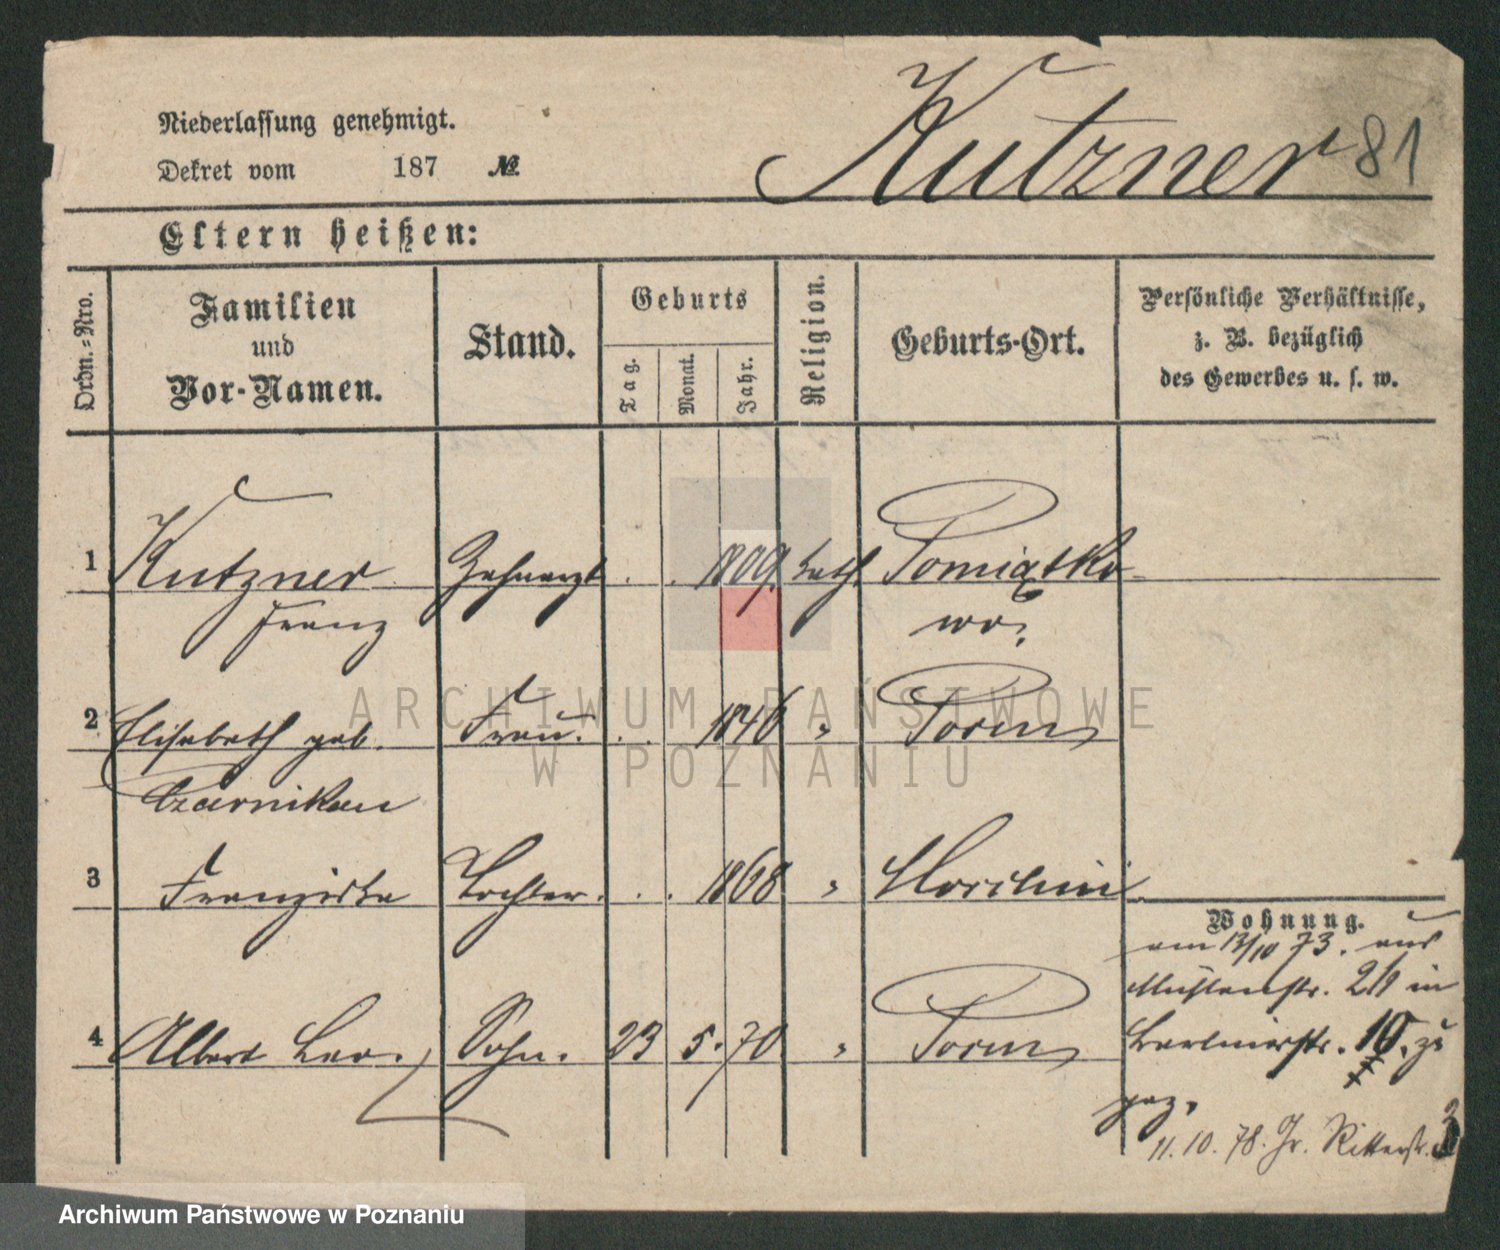 Kutzner 81
Niederlassung genehmigt.
Dekret vom 187 №
Eltern heißen:
Ordn.=Nro.
Familien
und
Vor-Namen.
Stand.
Geburts
Tag.
Monat.
Jahr.
Religion.
Geburts-Ort.
Persönliche Verhältnisse,
z. B. bezüglich
des Gewerbes u. s. w.
1 Kutzner Zahnarzt . . 1809. kath. Pomiątko
Franz wo.
2 Elisabeth geb. Frau. . . 1846 "
Czarnikau
3 Franziska Tochter . . . 1868 "
4 Albert Leo. Sohn. 23 5. 70 "
Wohnung.
am 13/10 73. aus
Mühlenstr. 21 in
10. zu
gez.
11. 10. 78. Gr. Ritterstr. 3
ARCHIWUM PAŃSTWOWE
W POZNANIU
Archiwum Państwowe w Poznaniu